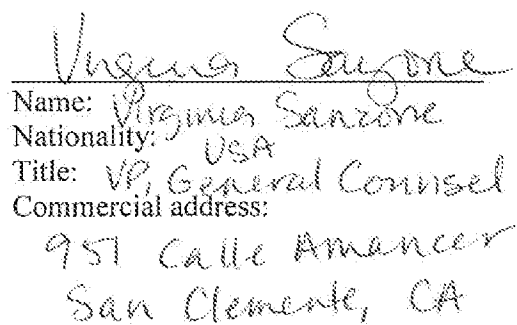 Virginia Sanzone
Name: Virginia Sanzone
Nationality: USA
Title: VP, General Counsel
Commercial address:
951 Calle Amanecer
San Clemente, CA